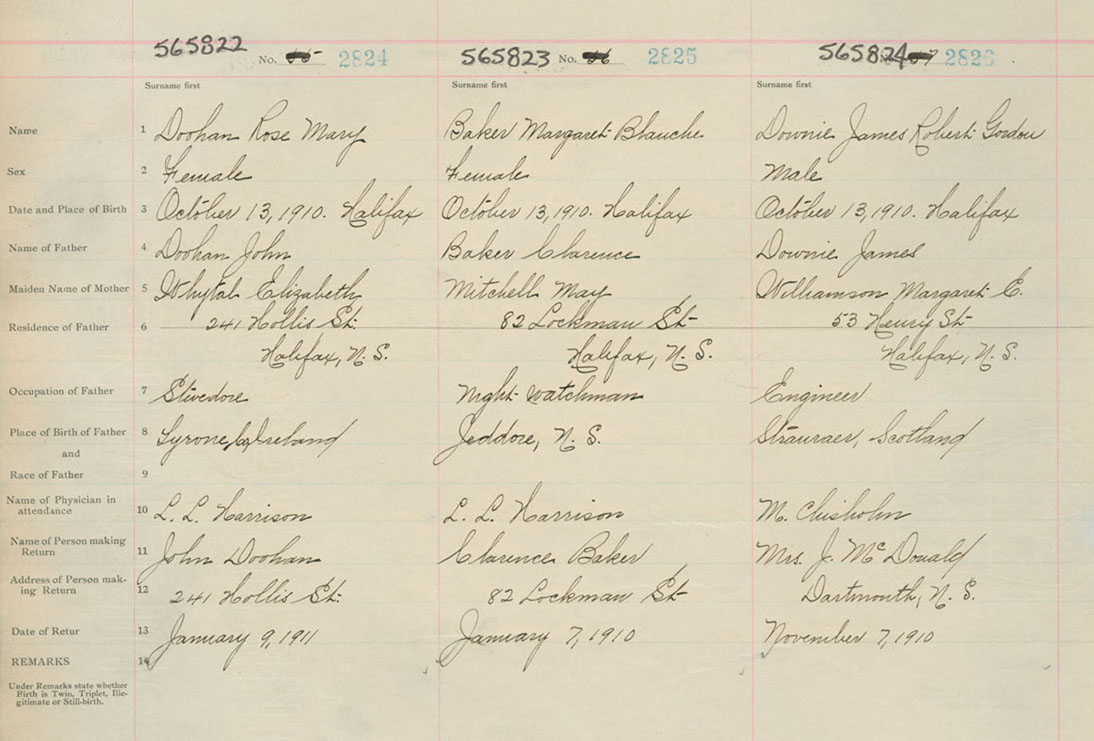 565822 No. 55 2824 565823 No. 56 2825 565824 57 2826
Surname first Surname first Surname first
Name 1 Doohan Rose Mary Baker Margaret Blanche Downie James Robert Gordon
Sex 2 Female Female Male
Date and Place of Birth 3 October 13, 1910. Halifax October 13, 1910. Halifax October 13, 1910. Halifax
Name of Father 4 Doohan John Baker Clarence Downie James
Maiden Name of Mother 5 Whytal Elizabeth Mitchell May Williamson Margaret E.
Residence of Father 6 241 Hollis St. 82 Lockman St 53 Henry St
Halifax, N. S. Halifax, N. S. Halifax, N. S.
Occupation of Father 7 Stivedore Night watchman Engineer
Place of Birth of Father 8 Tyrone, Co, Ireland Jeddore, N. S. Stranraer, Scotland
and
Race of Father 9
Name of Physician in
attendance 10 L. L. Harrison L. L. Harrison M. Chisholm
Name of Person making
Return 11 John Doohan Clarence Baker Mrs. J. McDonald
Address of Person mak-
ing Return 12 241 Hollis St. 82 Lockman St Dartmouth, N. S.
Date of Retur 13 January 9, 1911 January 7, 1910 November 7, 1910
REMARKS 14
Under Remarks state whether
Birth is Twin, Triplet, Ille-
gitimate or Still-birth.